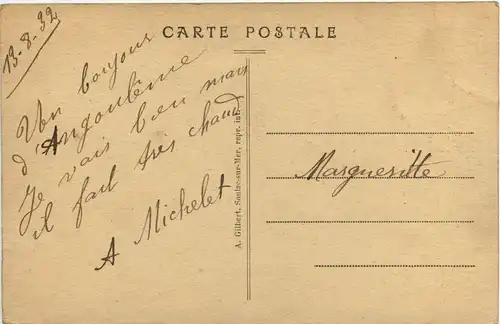 CARTE POSTALE
13-8-32
Un bonjour
d'Angoulême
Je vais bien mais
il fait très chaud
A Michelet
A. Gilbert, Soulac-sur-Mer, repr. int.
Margueritte